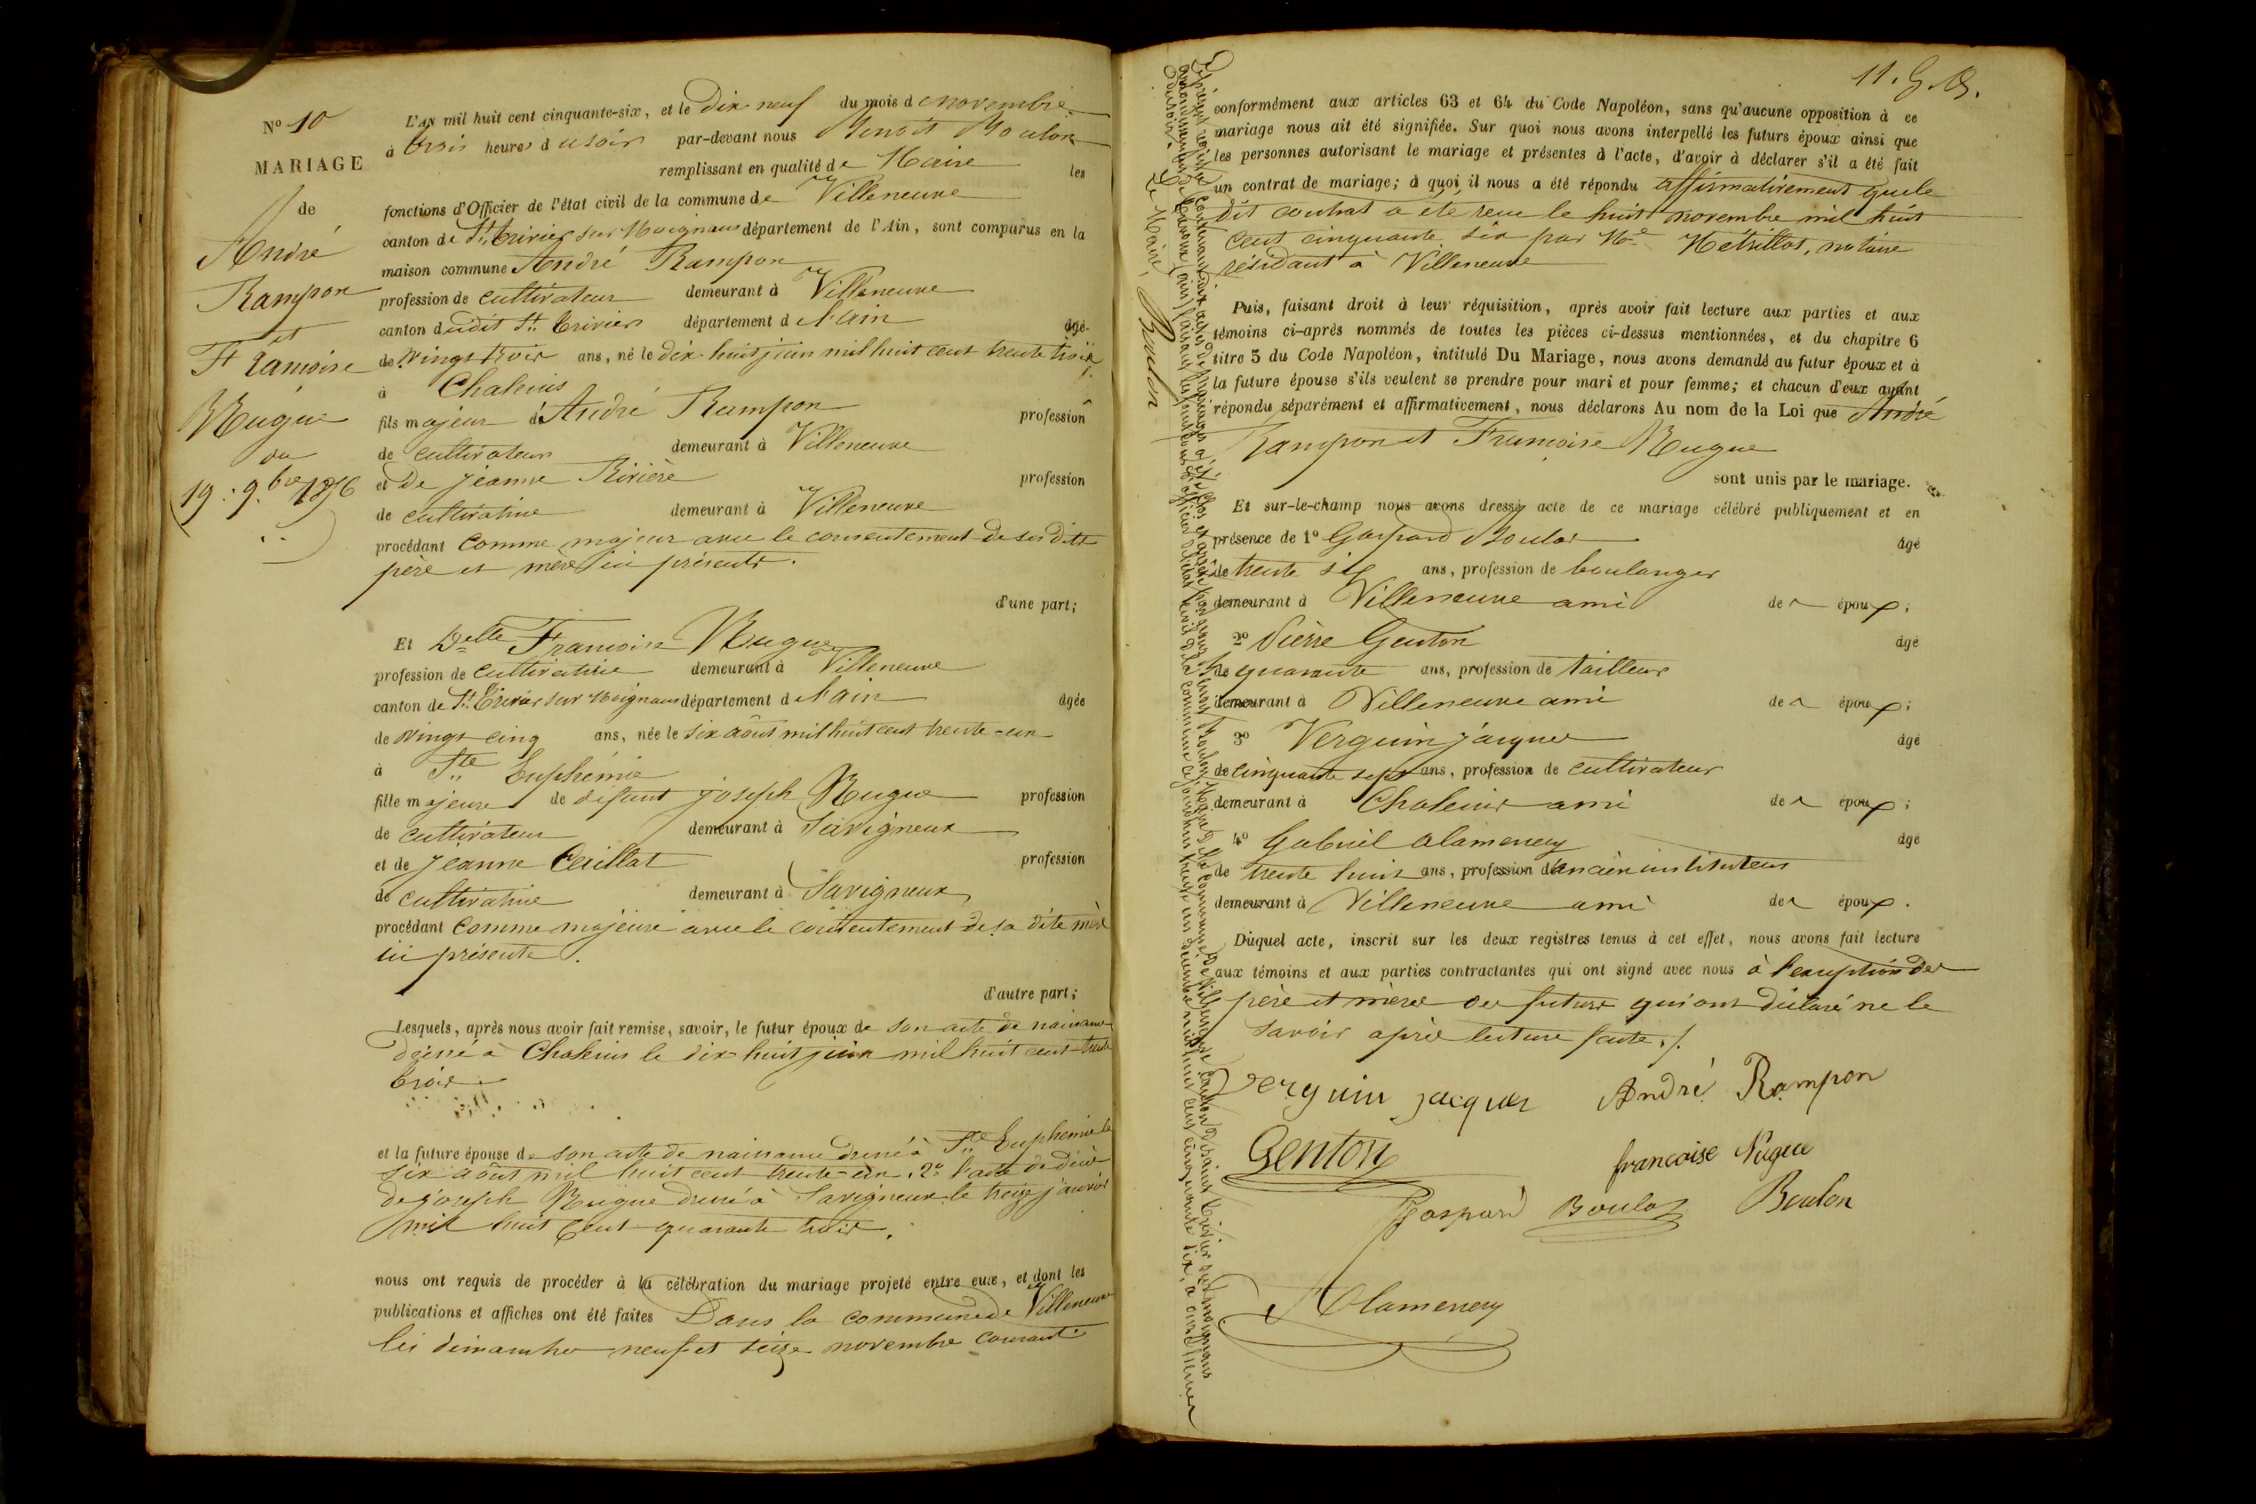 N° 10
MARIAGE
de
André
Rampon
et
Francoise
Nugue
du
19. 9.bre 1856
L'AN mil huit cent cinquante-six, et le Dix neuf du mois de novembre
à trois heures du soir par-devant nous Benoit Boulon
remplissant en qualité de Maire les
fonctions d'Officier de l'état civil de la commune de Villeneuve
canton de St. Trivier sur Moignans département de l'Ain, sont comparus en la
maison commune André Rampon
profession de cultivateur demeurant à Villeneuve
canton dudit St. Trivier département de l'ain âgé
de vingt trois ans, né le dix-huit juin mil huit cent trente trois
à Chaleins
fils majeur d'André Rampon profession
de cultivateur demeurant à Villeneuve
et De Jeanne Rivière profession
de cultivatrice demeurant à Villeneuve
procédant comme majeur avec le consentement de ses dits
père et mère ici présents.
d'une part;
Et Delle Francoise Nugue
profession de cultivatrice demeurant à Villeneuve
canton de St. Trivier sur Moignans département de l'ain âgée
de vingt cinq ans, née le six août mil huit cent trente-un
à Ste Euphémie
fille majeure de défunt joseph Nugue profession
de cultivateur demeurant à Savigneux
et de Jeanne profession
de cultivatrice demeurant à Savigneux
procédant comme majeure avec le consentement de sa dite mère
ici présente.
d'autre part;
Lesquels, après nous avoir fait remise, savoir, le futur époux de son acte de naissance
dressé à Chaleins le dix-huit juin mil huit cent trente
trois
et la future épouse de son acte de naissance dressé à Ste Euphémie le
six août mil huit cent trente-un, 2° l'acte de décès
de joseph Nugue dressé à Savigneux le treize janvier
mil huit cent quarante trois.
nous ont requis de procéder à la célébration du mariage projeté entre eux, et dont les
publications et affiches ont été faites Dans la commune de Villeneuve
les dimanches neuf et seize novembre courant
11. G. B.
conformément aux articles 63 et 64 du Code Napoléon, sans qu'aucune opposition à ce
mariage nous ait été signifiée. Sur quoi nous avons interpellé les futurs époux ainsi que
les personnes autorisant le mariage et présentes à l'acte, d'avoir à déclarer s'il a été fait
un contrat de mariage; à quoi il nous a été répondu affirmativement que le
dit contrat a été recu le huit novembre mil huit
cent cinquante six par Me Métrillot, notaire
résidant à Villeneuve
Puis, faisant droit à leur réquisition, après avoir fait lecture aux parties et aux
témoins ci-après nommés de toutes les pièces ci-dessus mentionnées, et du chapitre 6
titre 5 du Code Napoléon, intitulé Du Mariage, nous avons demandé au futur époux et à
la future épouse s'ils veulent se prendre pour mari et pour femme; et chacun d'eux ayant
répondu séparément et affirmativement, nous déclarons Au nom de la Loi que André
Rampon et Francoise Nugue
sont unis par le mariage.
Et sur-le-champ nous avons dressé acte de ce mariage célébré publiquement et en
présence de 1° Gaspard Boulot âgé
de trente six ans, profession de boulanger
demeurant à Villeneuve ami des époux;
2° Pierre Genton âgé
de quarante ans, profession de tailleur
demeurant à Villeneuve ami des époux;
3° Verguin jacques âgé
de cinquante sept ans, profession de cultivateur
demeurant à Chaleins ami des époux;
4° Gabriel Alamenery âgé
de trente huit ans, profession d'ancien instituteur
demeurant à Villeneuve ami des époux.
Duquel acte, inscrit sur les deux registres tenus à cet effet, nous avons fait lecture
aux témoins et aux parties contractantes qui ont signé avec nous à l'exception des
père et mères des futurs qui ont déclaré ne le
savoir après lecture faite./.
Verguin jacques André Rampon
Genton francoise Nugue
Gaspard Boulot Boulon
Alamenery
Le présent registre contenant dix actes de mariages a été clos et arrêté par nous Benoit Boulon Maire de la commune de Villeneuve canton de Saint Trivier sur moignans
arrondissement de Trévoux (ain) faisant les fonctions d'officier de l'état civil de la commune le trente un décembre mil huit cent cinquante six, à
du soir.
Le Maire, Boulon